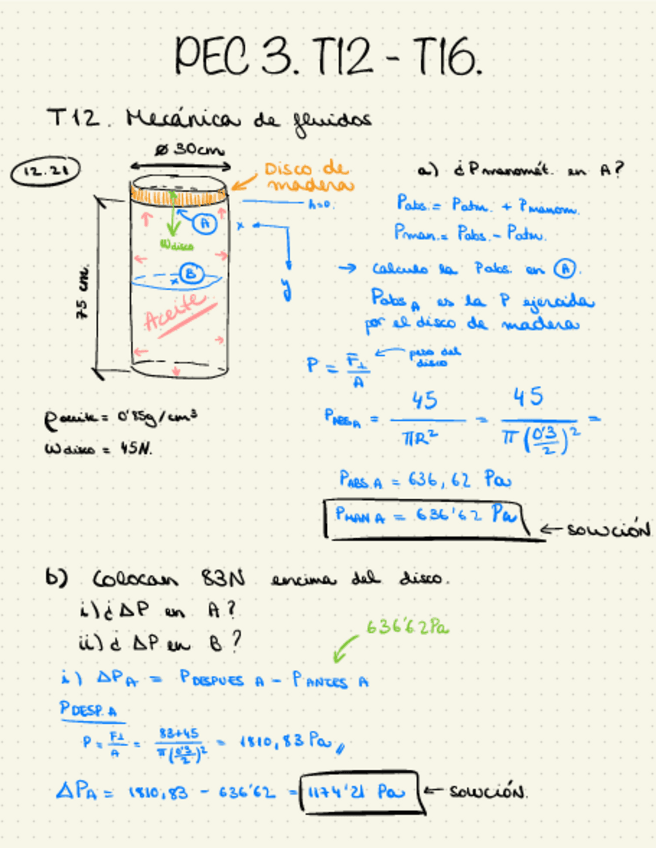 PEC 3. T12 - T16.
T12. Mecánica de fluidos
12.21
ø 30cm
Disco de
madera
h=0.
A
x
Wdisco
y
B
x
75 cm.
Aceite
ρaceite = 0'85g/cm³
Wdisco = 45N.
a) ¿Pmanomét. en A?
Pabs. = Patm. + Pmanom.
Pman. = Pabs. - Patm.
→ calculo la Pabs. en A.
Pabs A es la P ejercida
por el disco de madera
P = F⊥/A ← peso del disco
PABS A = 45/πR² = 45/π(0'3/2)² =
PABS. A = 636,62 Pa
PMAN A = 636'62 Pa ← SOLUCIÓN
b) Colocan 83N encima del disco.
i) ¿ΔP en A?
ii) ¿ΔP en B?
636'62Pa
i) ΔPA = PDESPUES A - PANTES A
PDESP. A
P = F⊥/A = 83+45/π(0'3/2)² = 1810,83 Pa
ΔPA = 1810,83 - 636'62 = 1174'21 Pa ← SOLUCIÓN.